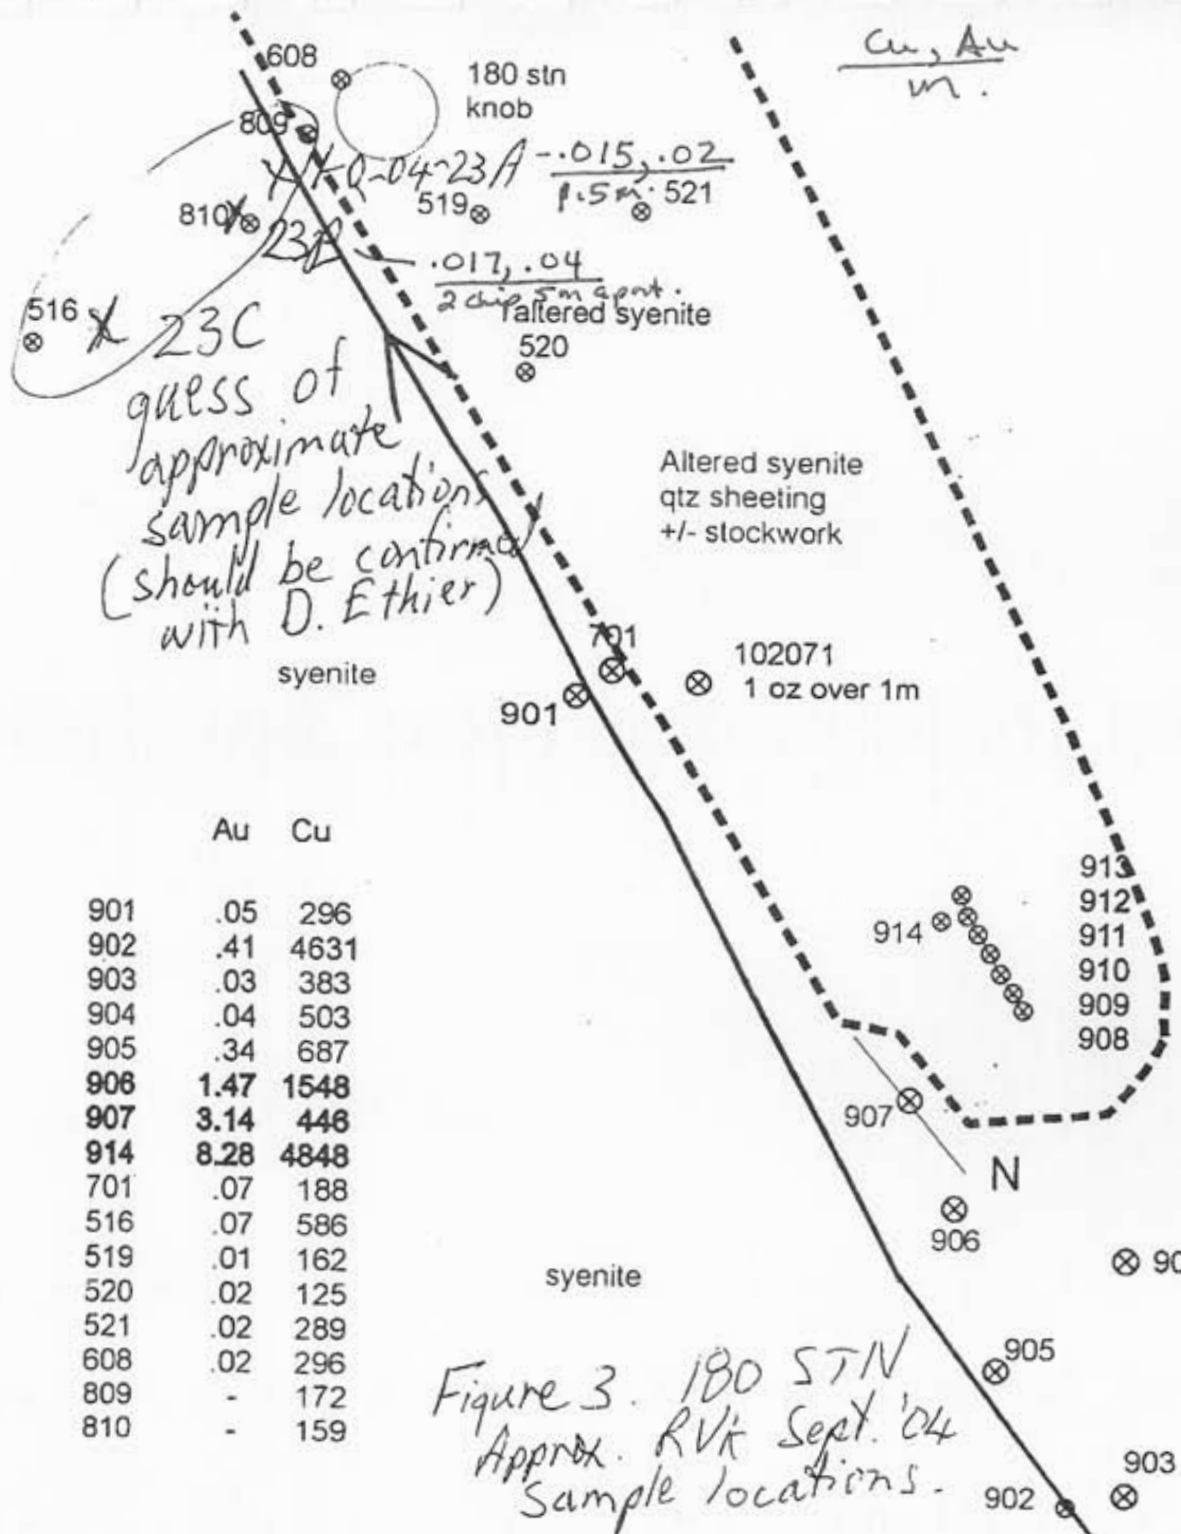 Cu, Au
m.
608
180 stn
knob
809
-0-04-23A - .015, .02
1.5m.
810
519
521
23B
.017, .04
2 chip 5m apart.
altered syenite
516
23C
520
guess of
approximate
sample locations
(should be confirmed
with D. Ethier)
Altered syenite
qtz sheeting
+/- stockwork
syenite
701
901
102071
1 oz over 1m
Au Cu
901 .05 296
902 .41 4631
903 .03 383
904 .04 503
905 .34 687
906 1.47 1548
907 3.14 446
914 8.28 4848
701 .07 188
516 .07 586
519 .01 162
520 .02 125
521 .02 289
608 .02 296
809 - 172
810 - 159
913
912
911
910
909
908
914
907
N
906
90
syenite
905
903
902
Figure 3. 180 STN
Approx. RVK Sept. '04
Sample locations.